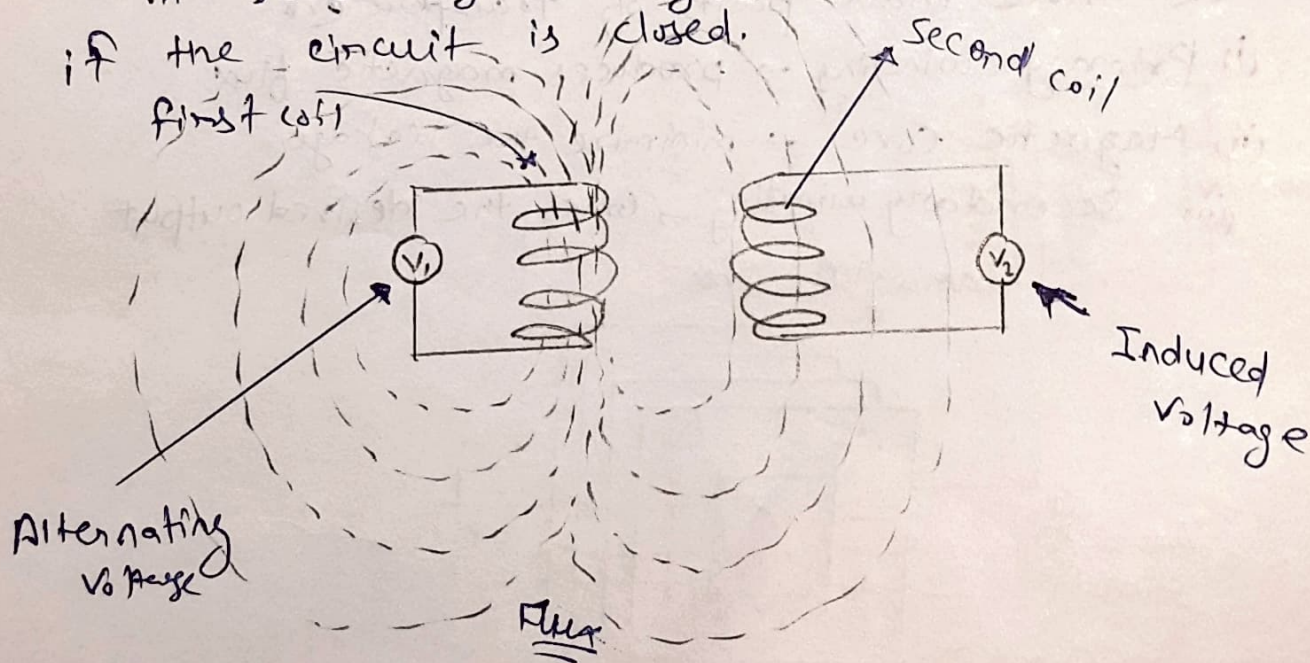 if the circuit is closed.
first coil
second coil
V₁
V₂
Induced
Voltage
Alternating
Voltage
Flux